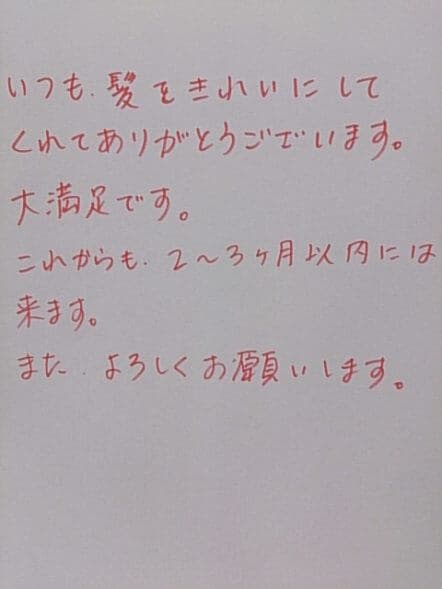 いつも、髪をきれいにして
くれてありがとうございます。
大満足です。
これからも、2〜3ヶ月以内には
来ます。
また、よろしくお願いします。